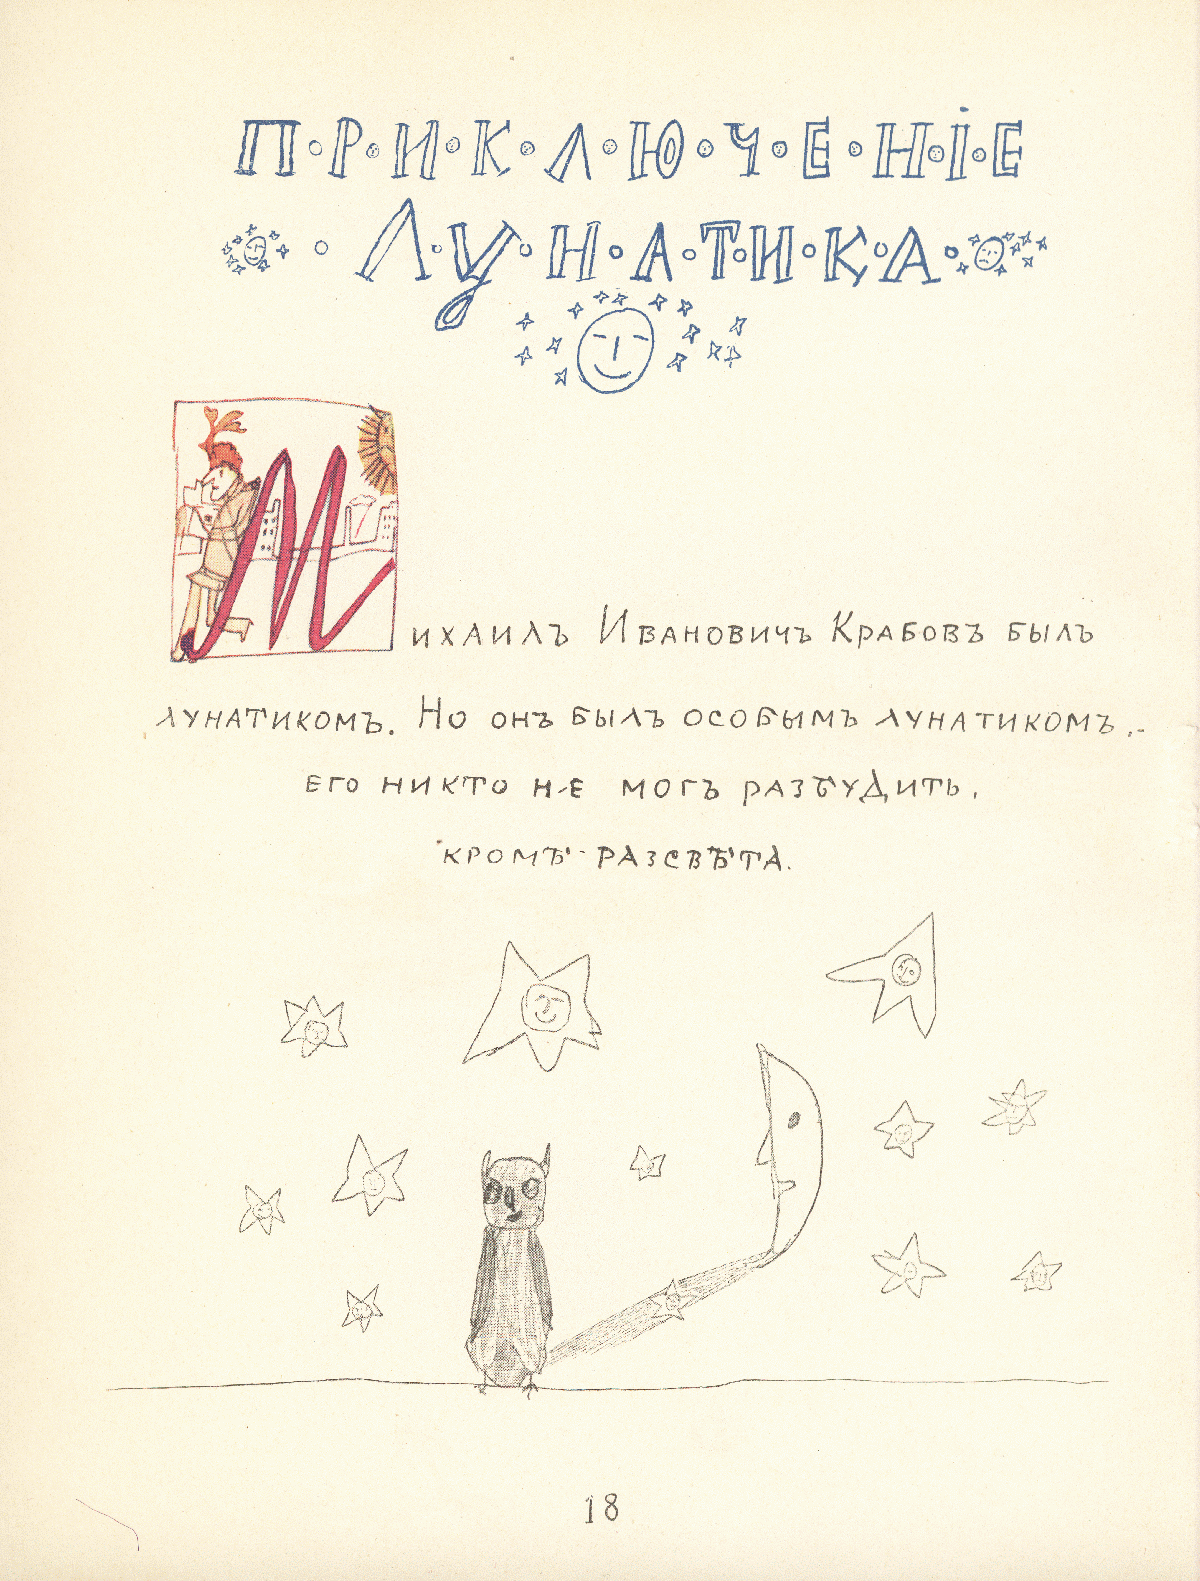 П·Р·И·К·Л·Ю·Ч·Е·Н·І·Е
Л·У·Н·А·Т·И·К·А
Михаилъ Ивановичъ Крабовъ былъ
лунатикомъ. Но онъ былъ особымъ лунатикомъ.-
его никто не могъ разбудить,
кромѣ разсвѣта.
18